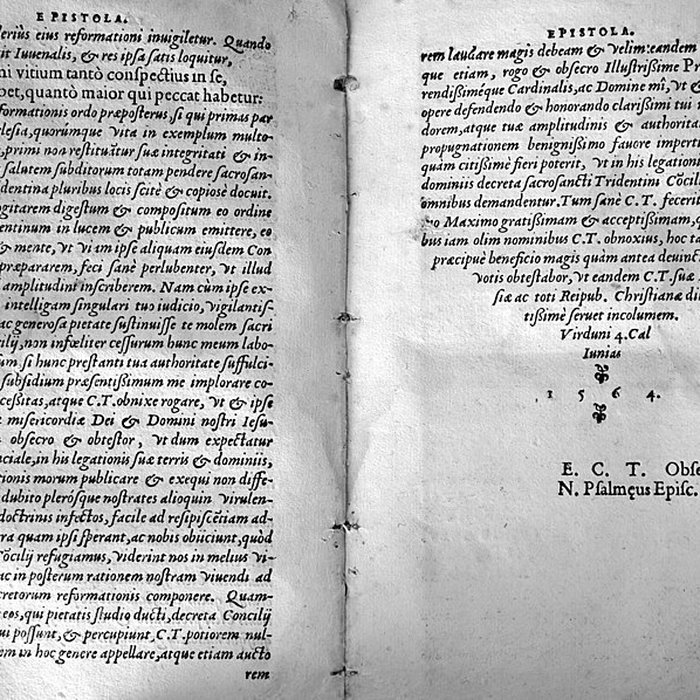 EPISTOLA.
lerius eius reformationi inuigiletur. Quando
it Iuuenalis, & res ipsa satis loquitur,
ni vitium tantò conspectius in se,
bet, quantò maior qui peccat habetur:
formationis ordo præposterus, si qui primas par
lesia, quorúmque vita in exemplum multo-
, primi non restituãtur suæ integritati & in-
salutem subditorum totam pendere sacrosan-
dentina pluribus locis scitè & copiosè docuit.
ogitarem digestum & compositum eo ordine
dentinum in lucem & publicum emittere, eo
& mente, vt vi am ipse aliquam eiusdem Con
præpararem, feci sanè perlubenter, vt illud
amplitudini inscriberem. Nam cùm ipse ex-
intelligam singulari tuo iudicio, vigilantis-
ac generosa pietate sustinuisse te molem sacri
cilij, non infœliter cessurum hunc meum labo-
um. si hunc prestanti tua authoritate suffulci-
subsidium præsentißimum me implorare co-
ceßitas, atque C.T. obnixe rogare, vt & ipse
t misericordiæ Dei & Domini nostri Iesu-
obsecro & obtestor, vt dum expectatur
nciale, in his legationis suæ terris & dominiis,
tionis morum publicare & exequi non diffe-
dubito plerósque nostrates alioquin virulen-
doctrinis infectos, facile ad resipiscẽtiam ad-
ra quam ipsi sperant, ac nobis obiiciunt, quòd
Cõcilij refugiamus, viderint nos in melius vi-
ac in posterum rationem nostram viuendi ad
cretorum reformationis componere. Quam-
eos, qui pietatis studio ducti, decreta Concilij
ui possunt, & percupiunt, C.T. potiorem nul-
um in hoc genere appellare, atque etiam aucto
rem
EPISTOLA.
rem laudare magis debeam & velim: eandem
que etiam, rogo & obsecro Illustrißime Pr
rendißiméque Cardinalis, ac Domine mî, vt &
opere defendendo & honorando clarißimi tui
dorem, atque tuæ amplitudinis & authorita
propugnationem benignißimo fauore imperti
quàm citißimè fieri poterit, vt in his legation
dominiis decreta sacrosancti Tridentini Cõcil
omnibus demandentur. Tum sanè C.T. fecerit
Maximo gratißimam & acceptißimam, q
bus iam olim nominibus C.T. obnoxius, hoc ta
præcipuè beneficio magis quàm antea deuinct
votis obtestabor, vt eandem C.T. suæ
siæ ac toti Reipub. Christianæ di
tißimè seruet incolumem.
Virduni 4. Cal
Iunias
1 5 6 4.
E. C. T. Obse
N. Psalmęus Episc.